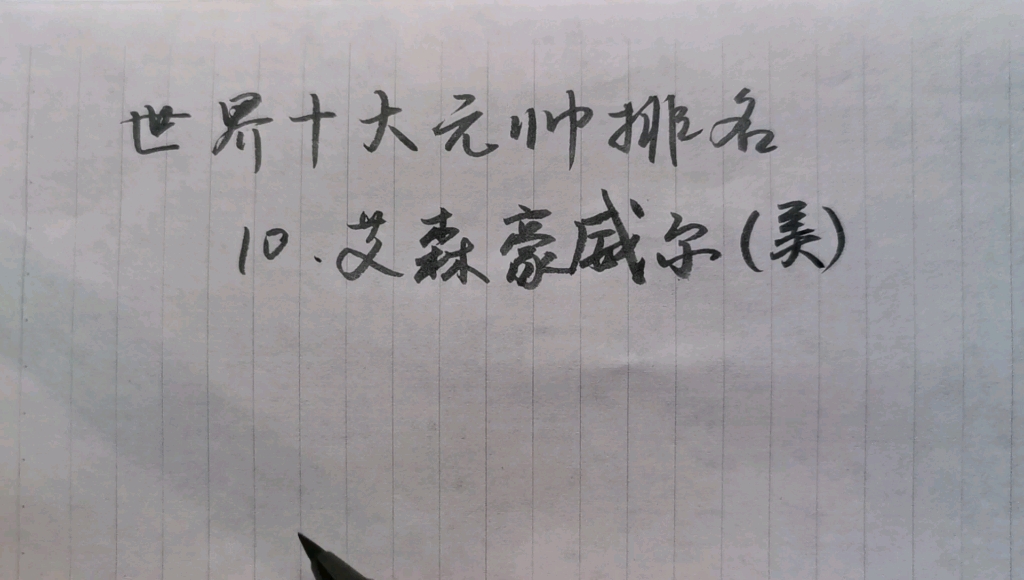 世界十大元帅排名
10.艾森豪威尔(美)